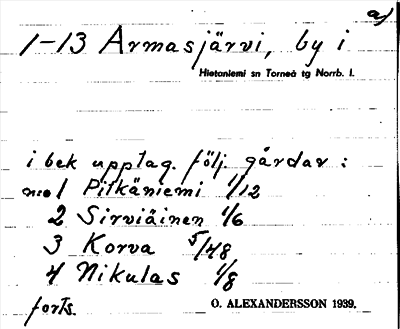 a)
1-13 Armasjärvi, by i
Hietaniemi sn Torneå tg Norrb. l.
i bek upptag. följ. gårdar:
n:o 1 Pitkäniemi 1/12
2 Sirviäinen 1/6
3 Korva 5/48
4 Nikulas 1/8
forts.
O. ALEXANDERSSON 1939.